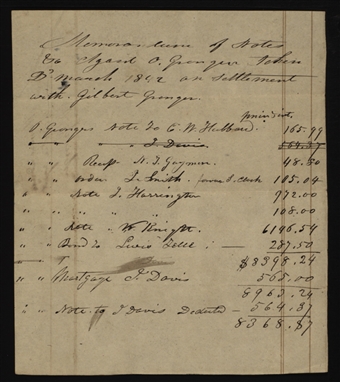 Memorandum of Notes
& Agard O. Granger taken
March 1842 on settlement
with Gilbert Granger.
principal
O. Granger Note To C. W. Hubbard. 165.99
" " " J. Davis 564.37
" " Recpt N. J. Gaymon. 48.50
" " order J. Smith 105.04
" " Note J. Harrington 772.00
" " " " 108.00
" " Note W. Knight. 6196.54
" " Bond to — 287.50
$8398.24
" " Mortgage J. Davis 565.00
8963.24
" " Note to J Davis Deducted — 564.37
8368.87